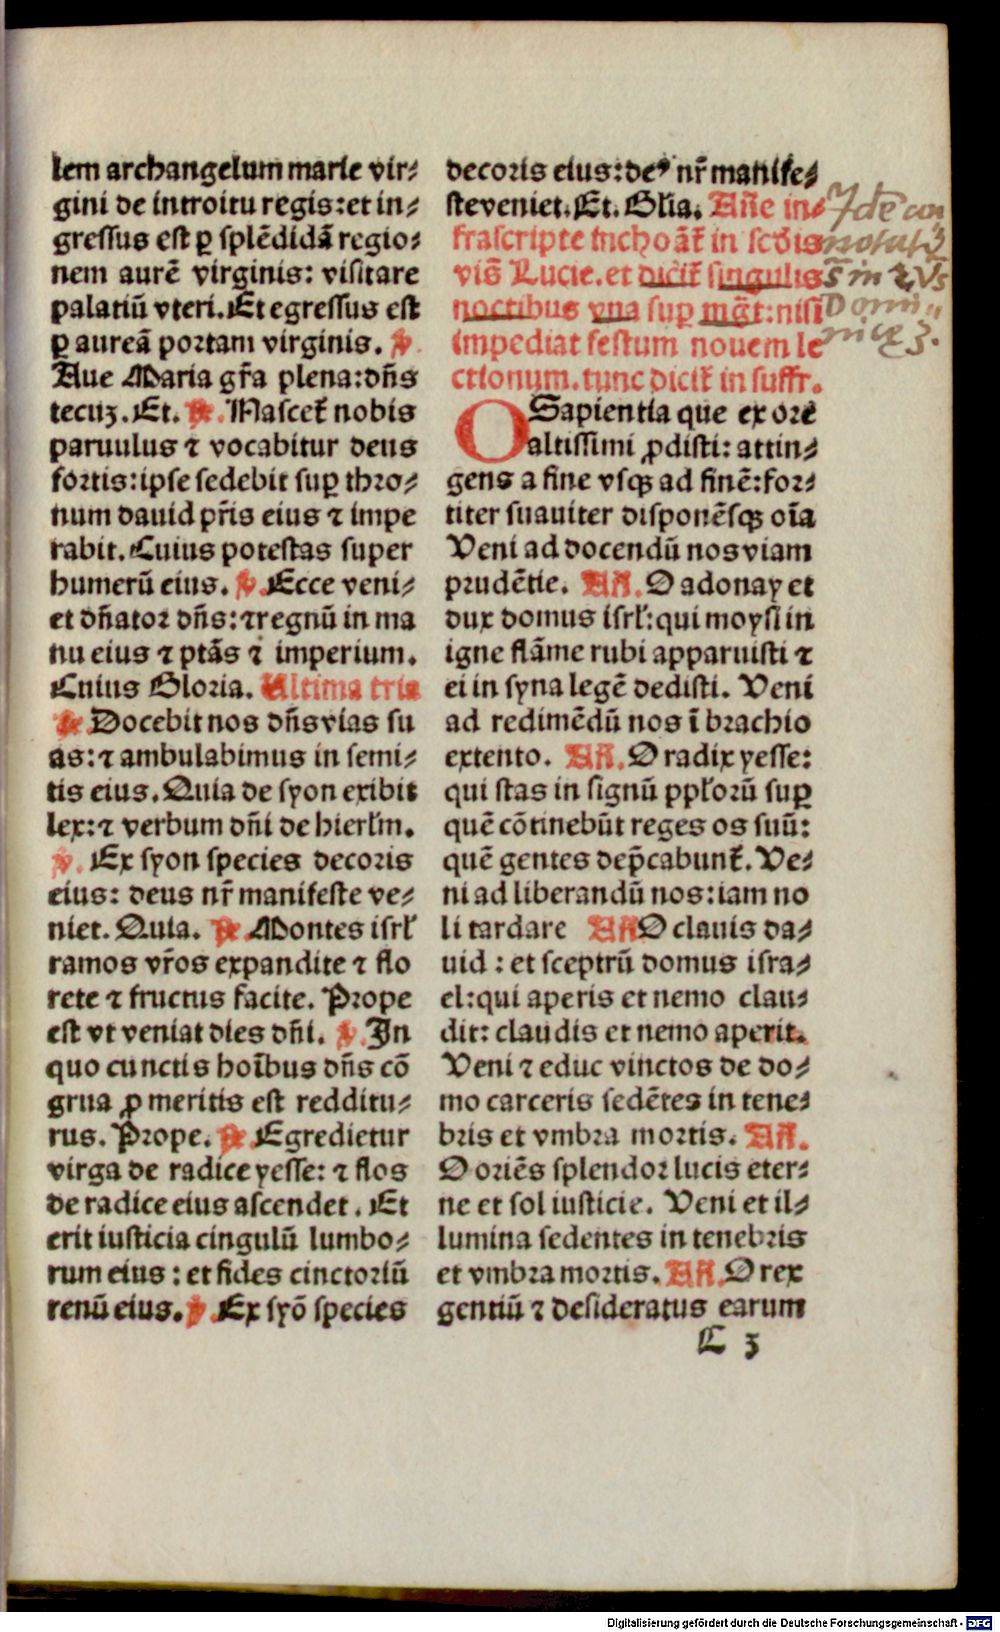 lem archangelum marie vir⸗
gini de introitu regis: et in⸗
gressus est ꝑ splẽdidã regio⸗
nem aurẽ virginis: visitare
palatiũ vteri. Et egressus est
ꝑ aureã portam virginis. ℣.
Aue Maria gr̃a plena: dñs
tecuꝫ. Et. ℟. Nascet᷑ nobis
paruulus ⁊ vocabitur deus
fortis: ipse sedebit suꝑ thro⸗
num dauid pr̃is eius ⁊ impe
rabit. Cuius potestas super
humerũ eius. ℣. Ecce veni⸗
et dñator dñs: ⁊ regnũ in ma
nu eius ⁊ ptãs ⁊ imperium.
Cuius Gloria. Ultima tria
℟. Docebit nos dñs vias su
as: ⁊ ambulabimus in semi⸗
tis eius. Quia de syon exibit
lex: ⁊ verbum dñi de hierl̃m.
℣. Ex syon species decoris
eius: deus nr̃ manifeste ve⸗
niet. Quia. ℟. Montes isrl̃
ramos vr̃os expandite ⁊ flo
rete ⁊ fructus facite. Prope
est vt veniat dies dñi. ℣. In
quo cunctis hoĩbus dñs cõ
grua ꝓ meritis est redditu⸗
rus. Prope. ℟. Egredietur
virga de radice yesse: ⁊ flos
de radice eius ascendet. Et
erit iusticia cingulũ lumbo⸗
rum eius: et fides cinctoriũ
renũ eius. ℣. Ex syõ species
decoris eius: deꝰ nr̃ manife⸗
ste veniet. Et. Glĩa. Añe in⸗
frascripte inchoãt᷑ in scd̃is
vis̃ Lucie. et dicit᷑ singulis
noctibus vna suꝑ mg̃t: nisi
impediat festum nouem le
ctionum. tunc dicit᷑ in suffr̃.
O Sapientia que ex ore
altissimi ꝓdisti: attin⸗
gens a fine vsqꝫ ad finẽ: for⸗
titer suauiter disponẽsqꝫ oĩa
Veni ad docendũ nos viam
prudẽtie. Añ. O adonay et
dux domus isrl̃: qui moysi in
igne flãme rubi apparuisti ⁊
ei in syna legẽ dedisti. Veni
ad redimẽdũ nos ĩ brachio
extento. Añ. O radix yesse:
qui stas in signũ ppl̃orũ suꝑ
quẽ cõtinebũt reges os suũ:
quẽ gentes dep̃cabunt᷑. Ve⸗
ni ad liberandũ nos: iam no
li tardare Añ O clauis da⸗
uid: et sceptrũ domus isra⸗
el: qui aperis et nemo clau⸗
dit: claudis et nemo aperit.
Veni ⁊ educ vinctos de do⸗
mo carceris sedẽtes in tene⸗
bris et vmbra mortis. Añ.
O oriẽs splendor lucis eter⸗
ne et sol iusticie. Veni et il⸗
lumina sedentes in tenebris
et vmbra mortis. Añ. O rex
gentiũ ⁊ desideratus earum
C 3
Domi⸗
nicę
Digitalisierung gefördert durch die Deutsche Forschungsgemeinschaft - DFG